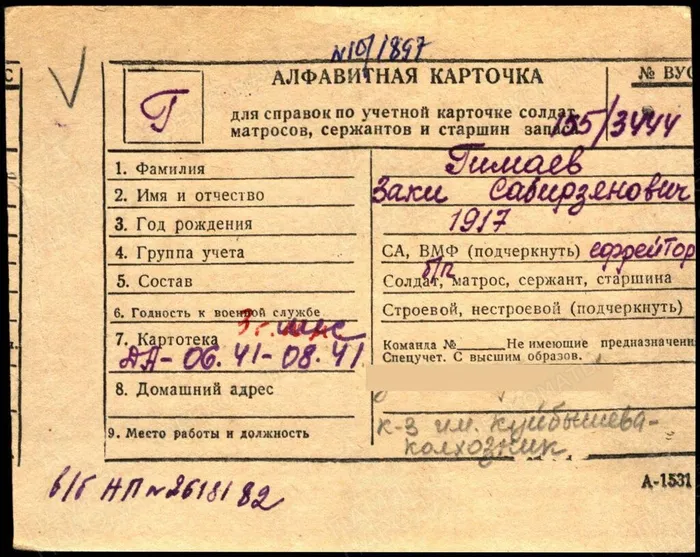 №10/1897
АЛФАВИТНАЯ КАРТОЧКА
№ ВУС
Г
для справок по учетной карточке солдат,
матросов, сержантов и старшин запаса
155/3444
1. Фамилия
Гимаев
2. Имя и отчество
Заки Сабирзянович
3. Год рождения
1917
4. Группа учета
СА, ВМФ (подчеркнуть) ефрейтор
5. Состав
Солдат, матрос, сержант, старшина
6. Годность к военной службе
Строевой, нестроевой (подчеркнуть)
7. Картотека
ДА - 06.41 - 08.41
Команда № Не имеющие предназначени
Спецучет. С высшим образов.
8. Домашний адрес
9. Место работы и должность
к-з им. Куйбышева -
колхозник
в/б НП №2618182
А-1531